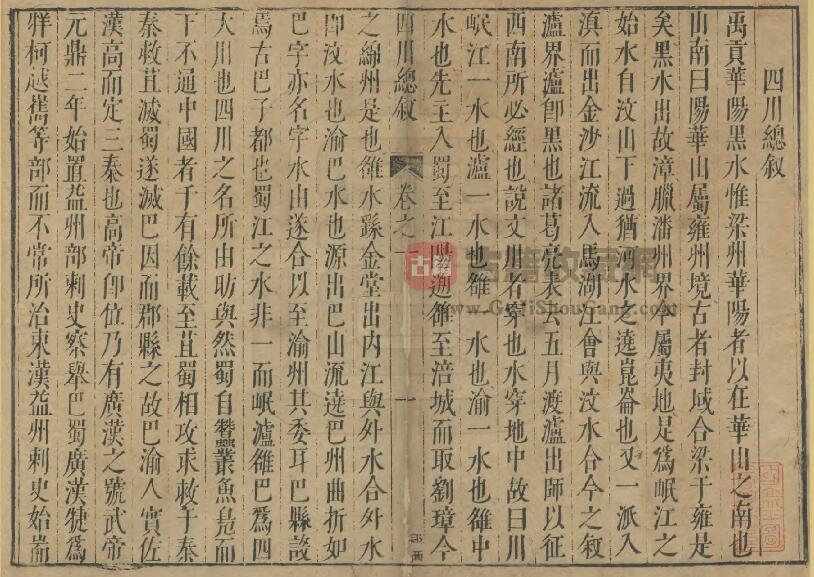 四川總敘
禹貢華陽黑水惟梁州華陽者以在華山之南也
山南曰陽華山屬雍州境古者封域合梁于雍是
矣黑水出故漳臘潘州界今屬夷地是爲岷江之
始水自汶山下過猶河水之遶崑崙也又一派入
滇而出金沙江流入馬湖江會與汶水合今之敘
瀘界瀘卽黑也諸葛亮表云五月渡瀘出師以征
西南所必經也說文川有穿也水穿地中故曰川
岷江一水也瀘一水也雒一水也渝一水也雒中
水也先主入蜀至江州遡雒至涪城而取劉璋今
四川總敘 卷之一 一
之綿州是也雒水繇金堂出内江與外水合外水
卽汶水也渝巴水也源出巴山流遶巴州曲折如
巴字亦名字水山遂合以至渝州其委耳巴縣設
焉古巴子都也蜀江之水非一而岷瀘雒巴爲四
大川也四川之名所由昉與然蜀自蠶叢魚鳧而
下不通中國者千有餘載至苴蜀相攻求救于秦
秦救苴滅蜀遂滅巴因而郡縣之故巴渝人實佐
漢高而定三秦也高帝卽位乃有廣漢之號武帝
元鼎二年始置益州部刺史察舉巴蜀廣漢犍爲
牂柯越巂等部而不常所治東漢益州刺史始崙
古籍收藏網
www.GujiShouCang.com